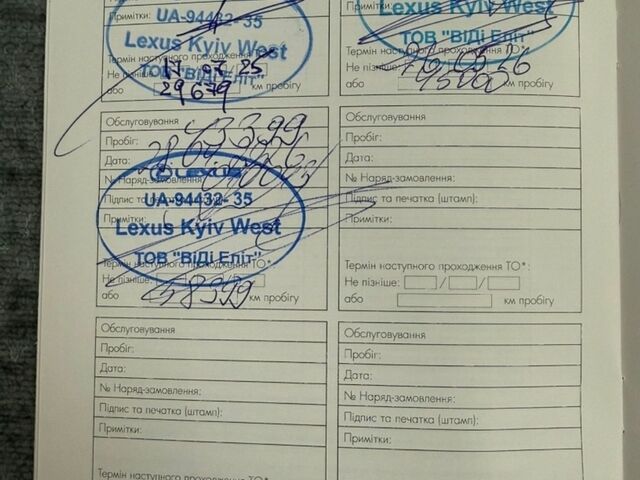 Примітки:
UA-94432-35
Lexus Kyiv West
ТОВ "ВіДі Еліт"
Термін наступного проходження ТО*:
Не пізніше:
17 07 25
або 29679 км пробігу
Lexus Kyiv West
ТОВ "ВіДі Еліт"
Термін наступного проходження ТО*:
Не пізніше:
або 45000 км пробігу
Обслуговування
Пробіг: 43399
Дата:
№ Наряд-замовлення:
LEXUS
Підпис та
UA-94432-35
Примітки:
Lexus Kyiv West
ТОВ "ВіДі Еліт"
Термін наступного проходження ТО*:
Не пізніше:
або 58399 км пробігу
Обслуговування
Пробіг:
Дата:
№ Наряд-замовлення:
Підпис та печатка (штамп):
Примітки:
Термін наступного проходження ТО*:
Не пізніше: / /
або км пробігу
Обслуговування
Пробіг:
Дата:
№ Наряд-замовлення:
Підпис та печатка (штамп):
Примітки:
Термін наступного проходження ТО*:
Обслуговування
Пробіг:
Дата:
№ Наряд-замовлення:
Підпис та печатка (штамп):
Примітки: